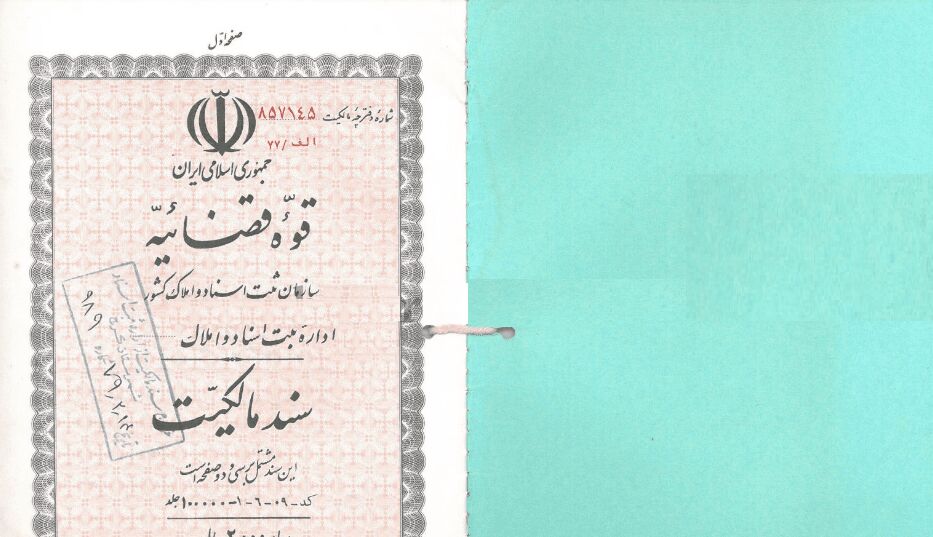 صفحه اول
شماره دفترچه مالکیت ۸۵۷۱۴۵
الف /۷۷
جمهوری اسلامی ایران
قوّه قضائیّه
سازمان ثبت اسناد و املاک کشور
اداره ثبت اسناد و املاک
سند مالکیّت
این سند مشتمل بر سی و دو صفحه است
کد ـ ۰۹ ـ ۶ ـ ۱ ـ ۱۰۰۰۰۰ جلد